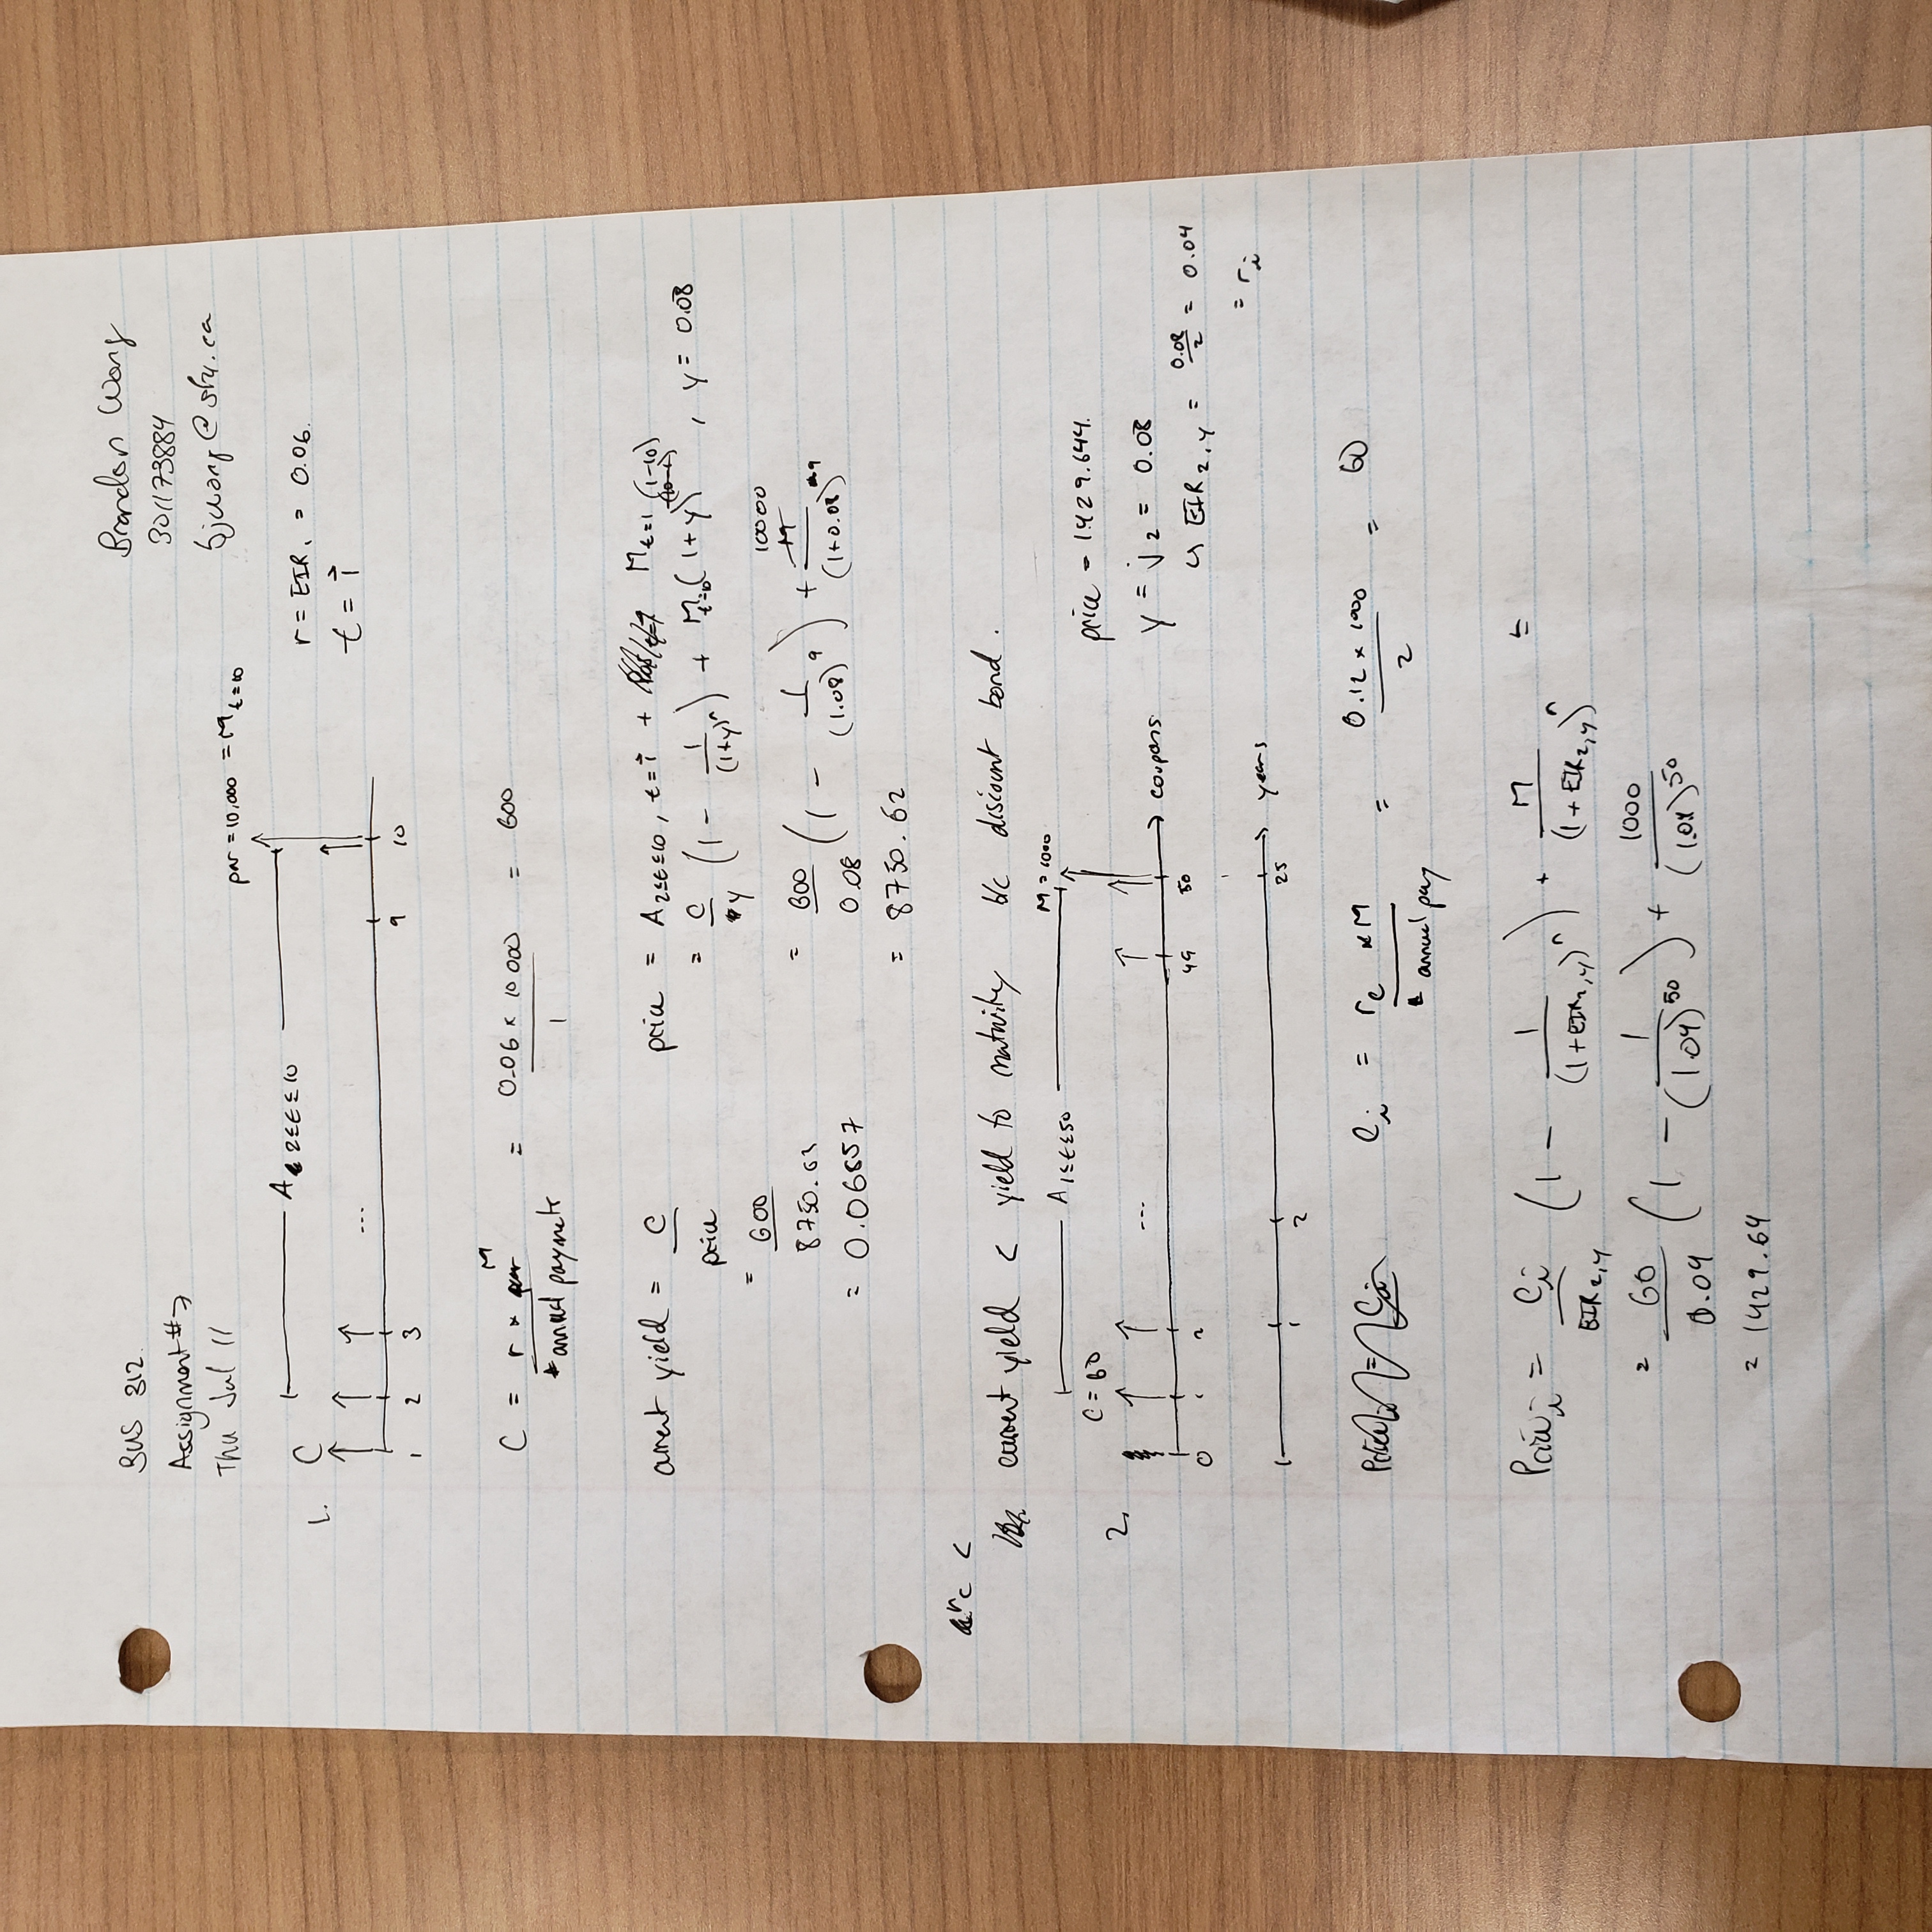 BUS 312.
Assignment # 7
Thu Jul 11
Brandon Wong
301173884
bjwong@sfu.ca
1.
C
A 2≤t≤10
par = 10,000 = M t=10
1 2 3 ... 9 10
r = EIR₁ = 0.06.
t = 1⃗
C = r × M / # annual payments = 0.06 × 10 000 / 1 = 600
current yield = C / price
= 600 / 8750.63
= 0.06857
price = A 2≤t≤10, t=1⃗ + M t=1
= C/y (1 - 1/(1+y)^n) + M t=10 (1+y)^(1-10) , y = 0.08
= 600/0.08 (1 - 1/(1.08)^9) + 10000/(1+0.08)^9
= 8750.62
r c <
current yield < yield to maturity b/c discount bond.
2.
A 1≤t≤50
M = 1000
C = 60
0 1 2 ... 49 50 coupons
1 2 25 years
price = 1429.644.
y = j₂ = 0.08
↳ EIR 2,y = 0.08/2 = 0.04
= r i
C i = r c × M / # annual pay = 0.12 × 1000 / 2 = 60
Price i = C i / EIR 2,y (1 - 1/(1+EIR 2,y)^n) + M/(1+EIR 2,y)^n =
= 60/0.04 (1 - 1/(1.04)^50) + 1000/(1.04)^50
= 1429.64